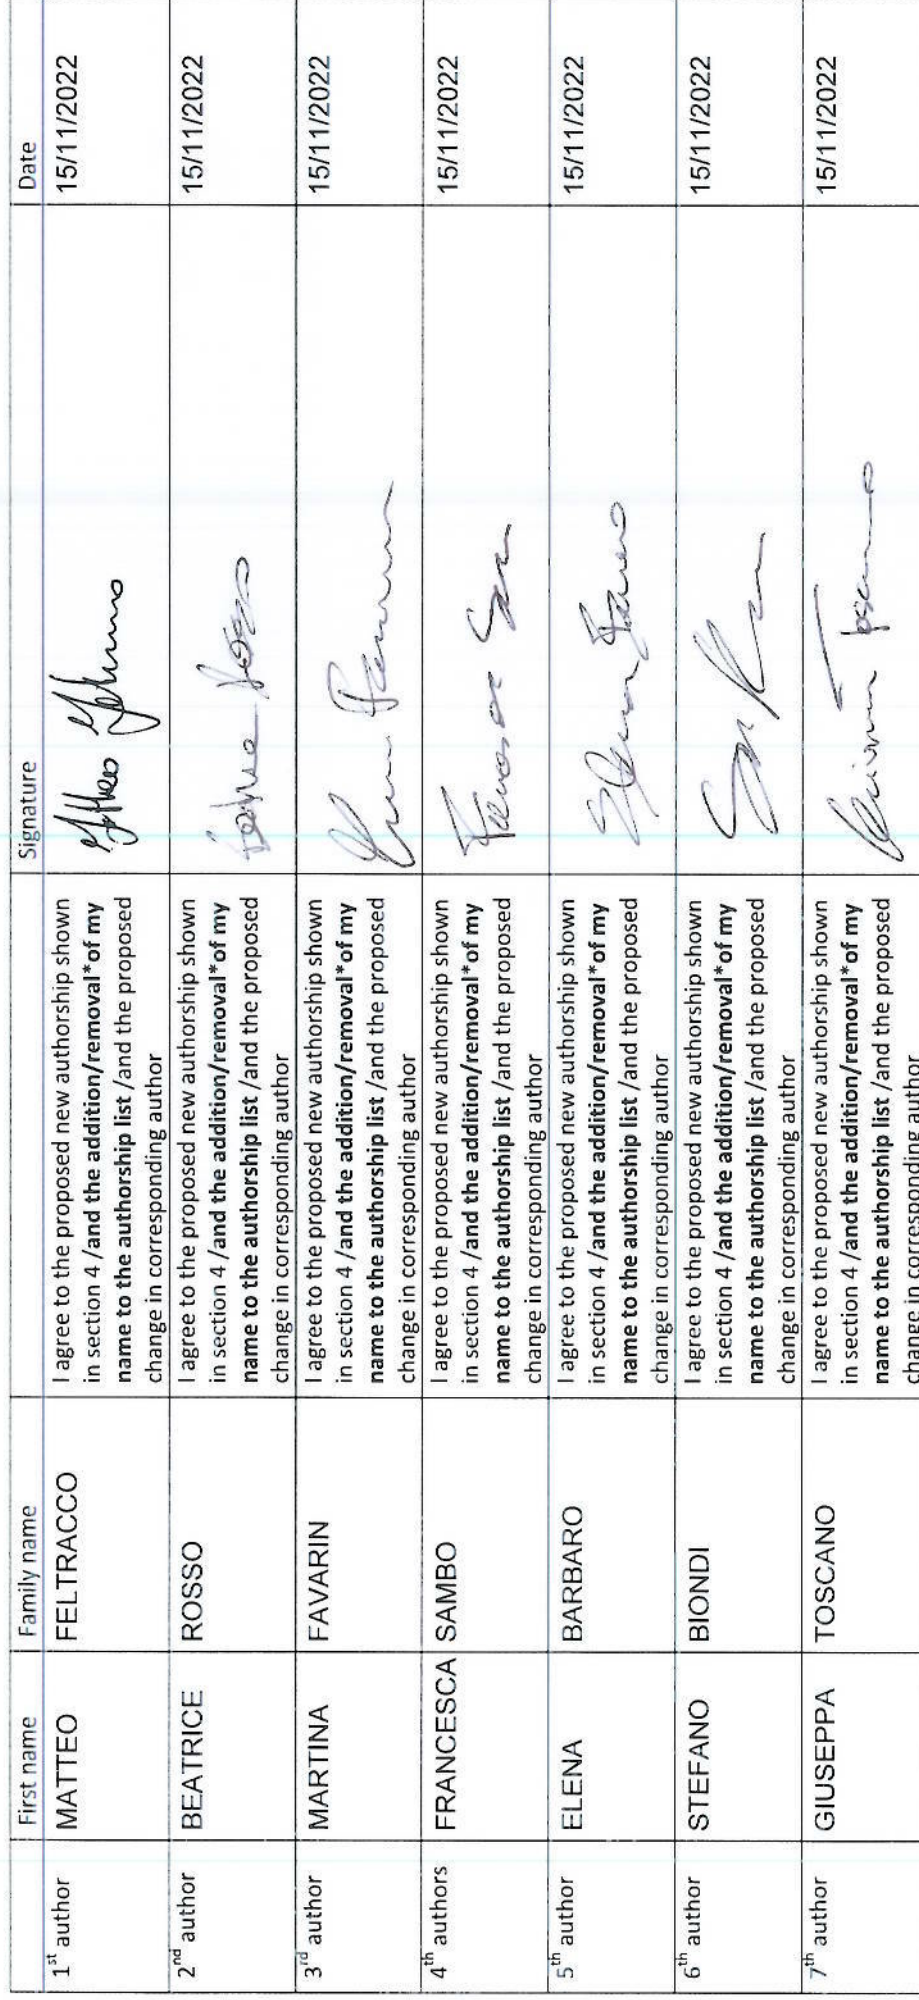 First name Family name Signature Date
1st author MATTEO FELTRACCO I agree to the proposed new authorship shown 15/11/2022
in section 4 /and the addition/removal*of my
name to the authorship list /and the proposed
change in corresponding author
2nd author BEATRICE ROSSO I agree to the proposed new authorship shown 15/11/2022
in section 4 /and the addition/removal*of my
name to the authorship list /and the proposed
change in corresponding author
3rd author MARTINA FAVARIN I agree to the proposed new authorship shown 15/11/2022
in section 4 /and the addition/removal*of my
name to the authorship list /and the proposed
change in corresponding author
4th authors FRANCESCA SAMBO I agree to the proposed new authorship shown 15/11/2022
in section 4 /and the addition/removal*of my
name to the authorship list /and the proposed
change in corresponding author
5th author ELENA BARBARO I agree to the proposed new authorship shown 15/11/2022
in section 4 /and the addition/removal*of my
name to the authorship list /and the proposed
change in corresponding author
6th author STEFANO BIONDI I agree to the proposed new authorship shown 15/11/2022
in section 4 /and the addition/removal*of my
name to the authorship list /and the proposed
change in corresponding author
7th author GIUSEPPA TOSCANO I agree to the proposed new authorship shown 15/11/2022
in section 4 /and the addition/removal*of my
name to the authorship list /and the proposed
change in corresponding author